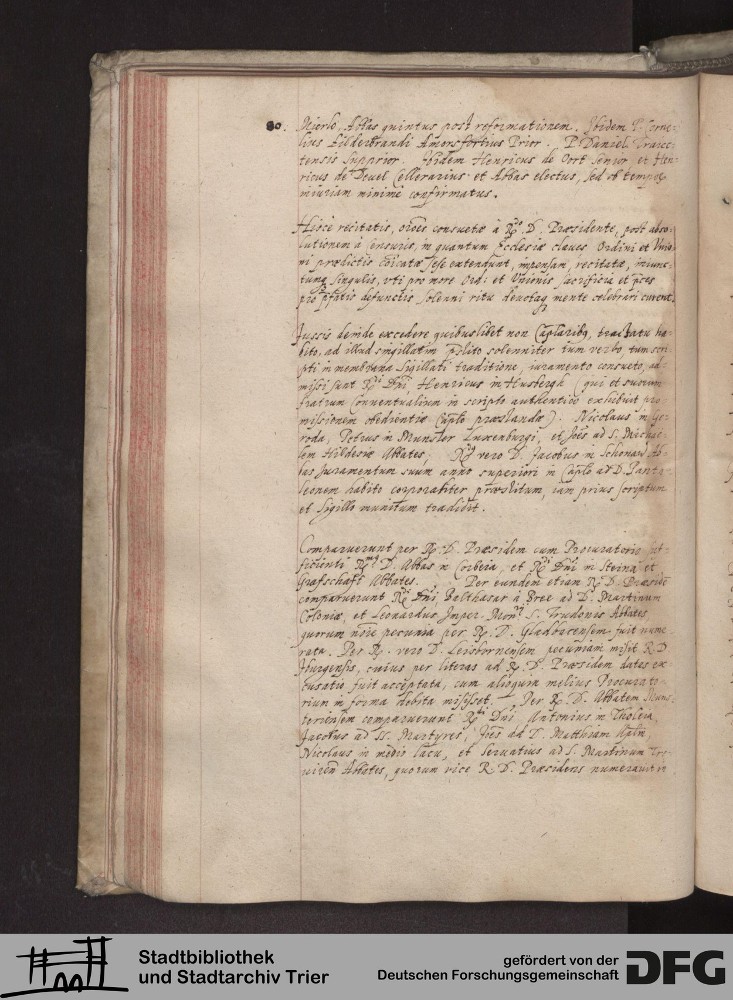 80. Mierlo, Abbas quintus post reformationem. Ibidem P. Corne-
lius Hilderbrandi Amorsfortius Prior. P. Daniel Traiec-
tensis Supprior. Ibidem Henricus de Oort Senior, et Hen-
ricus de Deuel Cellerarius et Abbas electus, sed ob temporis
iniuriam minimè confirmatus.
Hisce recitatis, orões consuetæ à Rdo. D. Præsidente, post abso-
lutionem à Censuris, in quantum Ecclesiæ claues Ordini et Vnio-
ni prædictis cõicatæ sese extendunt, impensam, recitatæ, iniunc-
tumq singulis, vti pro more Ord: et Vnionis sacrificia et pces
pro pfatis defunctis solenni ritu deuotaq mente celebrari curent.
Iussis deinde excedere quibuslibet non Caplaribq, tractatu ha-
bito, ad illud singillatim solenniter tum verbo, tum scri-
pti in membrana Sigillati traditione, iuramento consueto, ad-
missi sunt Rdi Dñi, Henricus in Husbergh (qui et suorum
fratrum Conuentualium in scripto authentico exhibuit pro-
missionem obedientiæ Caplo præstandæ). Nicolaus in Ge-
roda, Petrus in Munster Luxenburgi, et Joẽs ad S. Micha-
lem Hildesiæ Abbates, Rdq vero D. Jacobus in Schonaw Ab-
bas Juramentum suum anno superiori in Caplo ad D. Panta-
leonem habito corporaliter præstitum, iam prius scriptum
et Sigillo munitum tradidit.
Comparuerunt per R. D. Præsidem cum Procuratorio suf-
ficienti Rmq D. Abbas in Corbeia, et Rdi Dñi in Steina et
Grafschaft Abbates. Per eundem etiam R. D. Præsidē
comparuerunt Rdi Dñi Balthasar à Bree ad D. Martinum
Coloniæ, et Leonardus Imper. Monrij S. Trudonis Abbates,
quorum noĩe pecunia per R. D. Gladbacensem fuit nume-
rata. Per R. vero D. Leisbornensem pecuniam misit R. D
Iburgensis, cuius per literas ad R. D. Præsidem datas ex-
cusatio fuit acceptata, cum alioquin melius Procurato-
rium in forma debita misisset. Per R. D. Abbatem Muns-
teriensem comparuerunt Rdi Dñi, Antonius in Tholeia,
Jacobus ad SS. Martyres, Joẽs ad S. Matthiam Aplm,
Nicolaus in medio lacu, et Seruatius ad S. Martinum Tre-
uiren̄ Abbates, quorum vice R. D. Præsidens numerauit
Stadtbibliothek
und Stadtarchiv Trier
gefördert von der
Deutschen Forschungsgemeinschaft
DFG